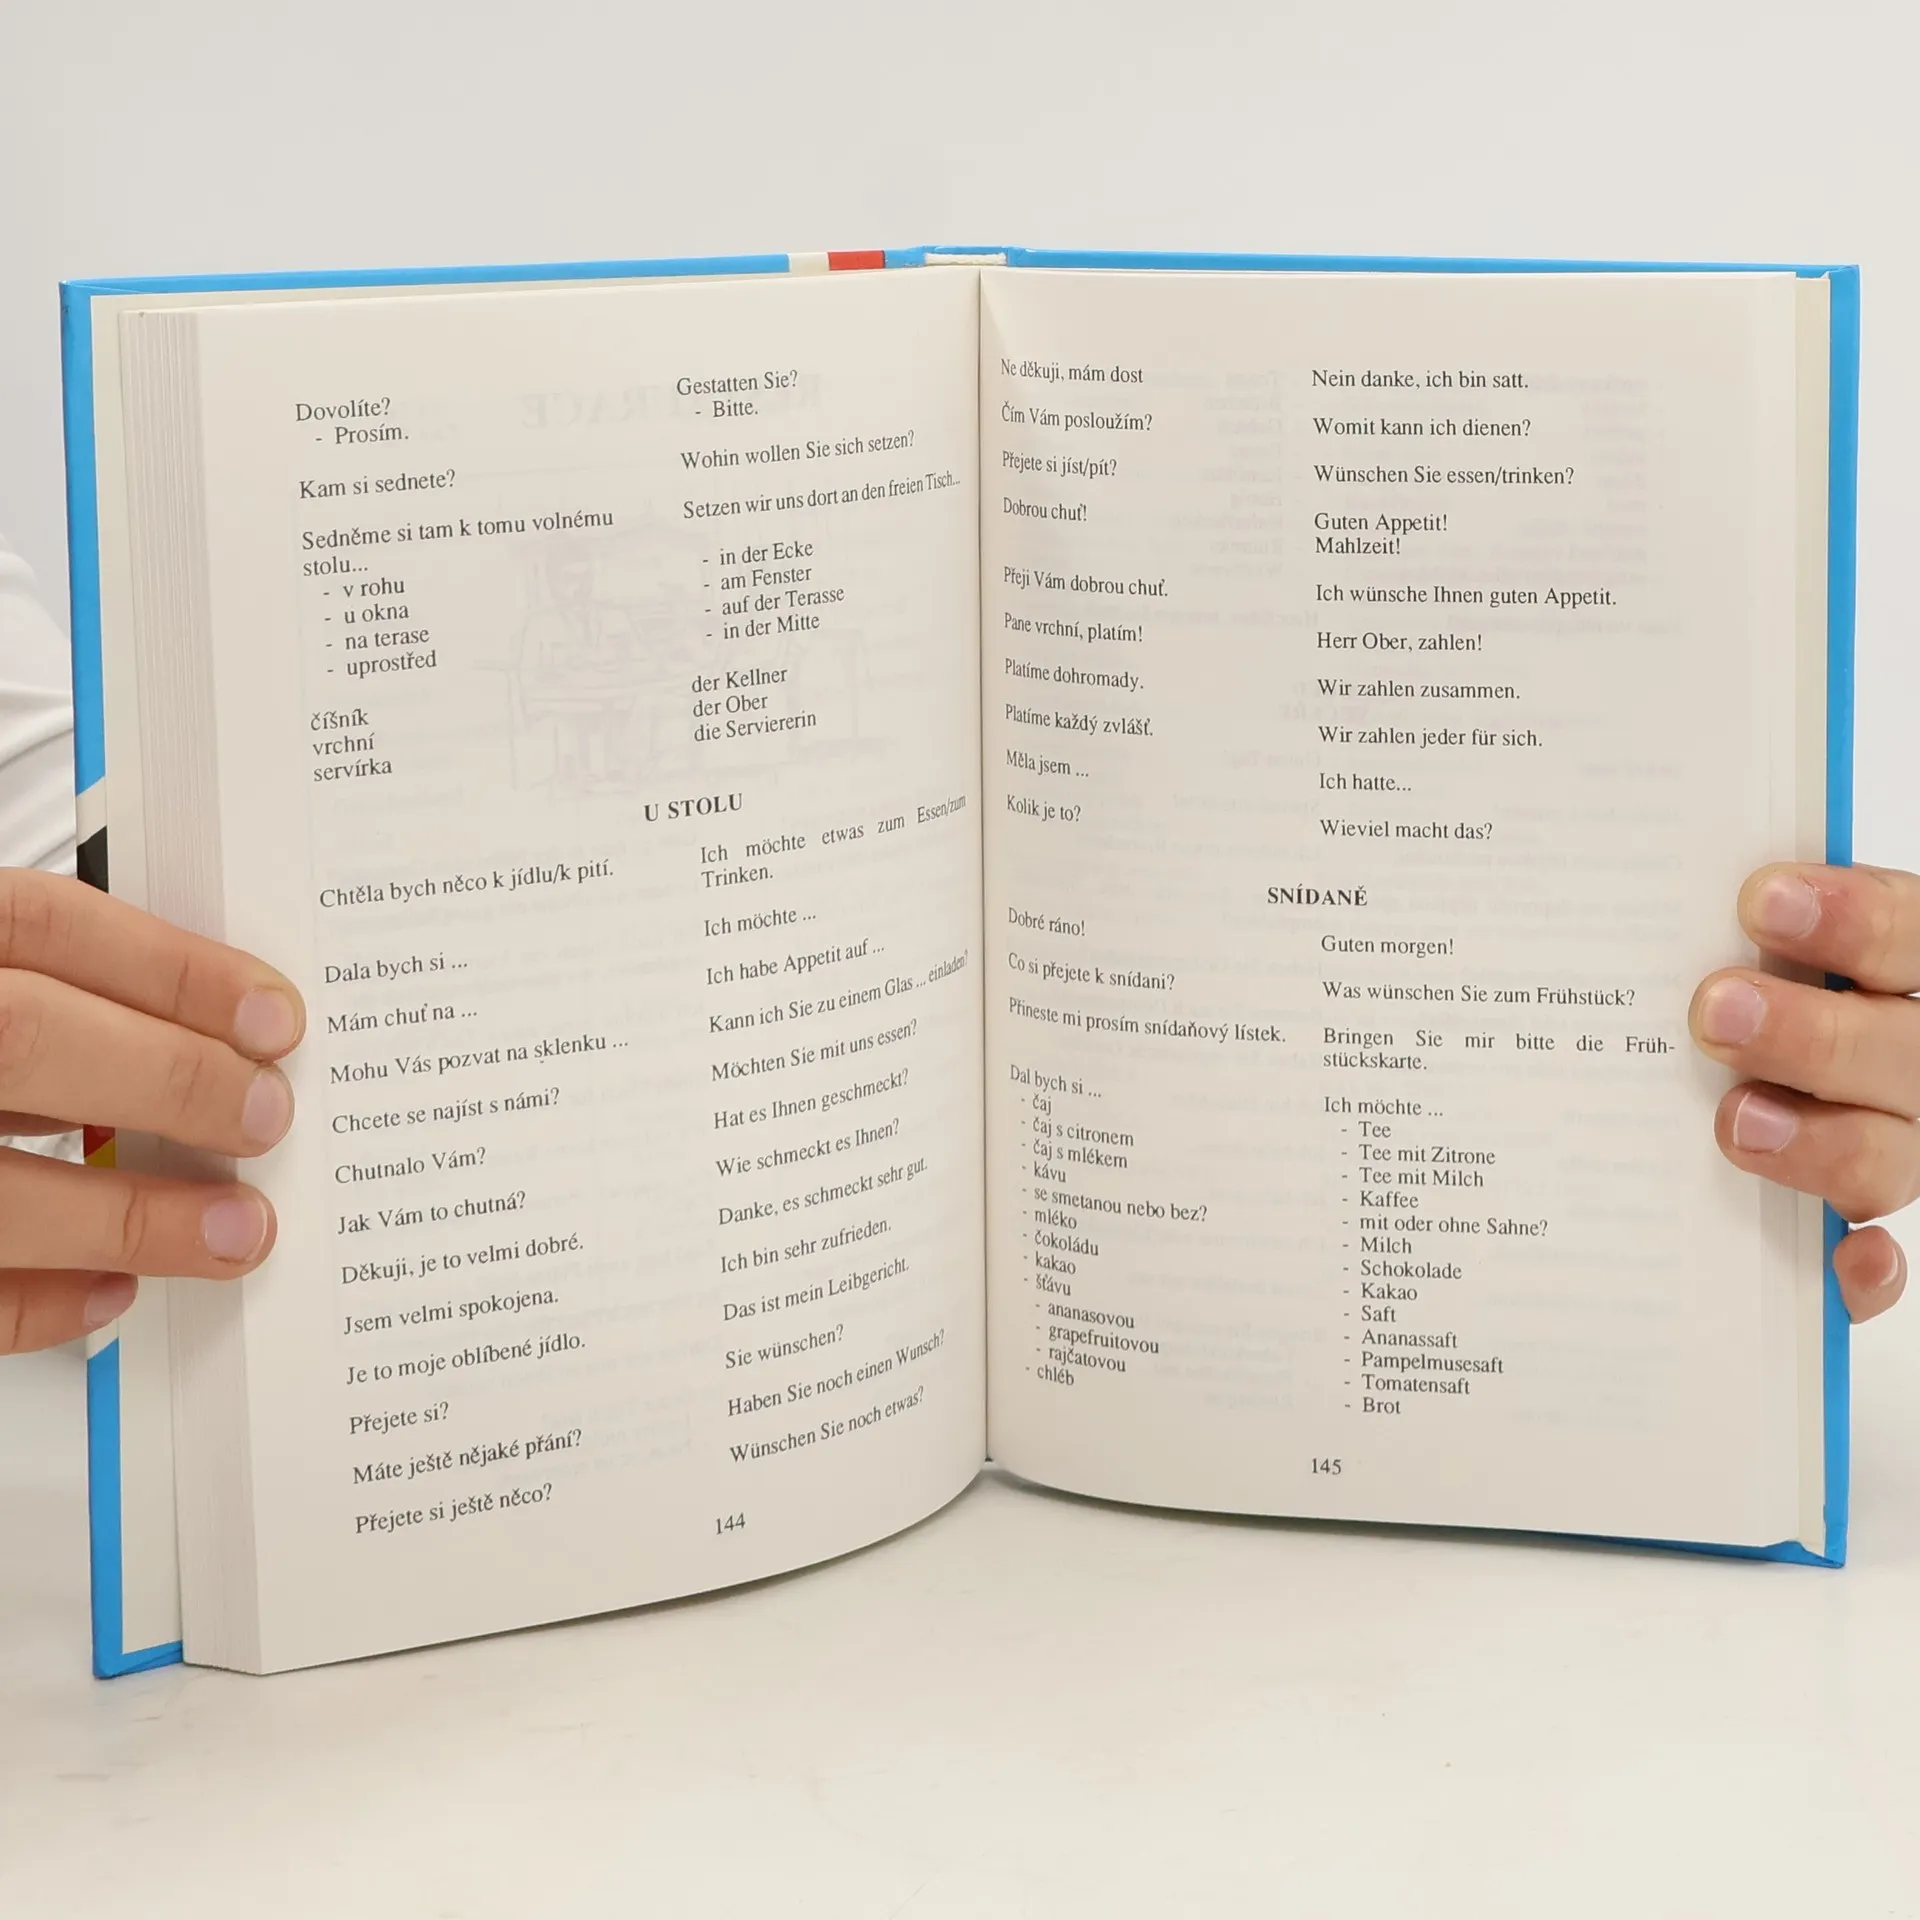 Dovolíte?
- Prosím.
Kam si sednete?
Sedněme si tam k tomu volnému
stolu...
- v rohu
- u okna
- na terase
- uprostřed
číšník
vrchní
servírka
Gestatten Sie?
- Bitte.
Wohin wollen Sie sich setzen?
Setzen wir uns dort an den freien Tisch...
- in der Ecke
- am Fenster
- auf der Terasse
- in der Mitte
der Kellner
der Ober
die Serviererin
U STOLU
Chtěla bych něco k jídlu/k pití.
Dala bych si ...
Mám chuť na ...
Mohu Vás pozvat na sklenku ...
Chcete se najíst s námi?
Chutnalo Vám?
Jak Vám to chutná?
Děkuji, je to velmi dobré.
Jsem velmi spokojena.
Je to moje oblíbené jídlo.
Přejete si?
Máte ještě nějaké přání?
Přejete si ještě něco?
Ich möchte etwas zum Essen/zum
Trinken.
Ich möchte ...
Ich habe Appetit auf ...
Kann ich Sie zu einem Glas ... einladen?
Möchten Sie mit uns essen?
Hat es Ihnen geschmeckt?
Wie schmeckt es Ihnen?
Danke, es schmeckt sehr gut.
Ich bin sehr zufrieden.
Das ist mein Leibgericht.
Sie wünschen?
Haben Sie noch einen Wunsch?
Wünschen Sie noch etwas?
144
Ne děkuji, mám dost
Čím Vám posloužím?
Přejete si jíst/pít?
Dobrou chuť!
Přeji Vám dobrou chuť.
Pane vrchní, platím!
Platíme dohromady.
Platíme každý zvlášť.
Měla jsem ...
Kolik je to?
Nein danke, ich bin satt.
Womit kann ich dienen?
Wünschen Sie essen/trinken?
Guten Appetit!
Mahlzeit!
Ich wünsche Ihnen guten Appetit.
Herr Ober, zahlen!
Wir zahlen zusammen.
Wir zahlen jeder für sich.
Ich hatte...
Wieviel macht das?
SNÍDANĚ
Dobré ráno!
Co si přejete k snídani?
Přineste mi prosím snídaňový lístek.
Dal bych si ...
- čaj
- čaj s citronem
- čaj s mlékem
- kávu
- se smetanou nebo bez?
- mléko
- čokoládu
- kakao
- šťávu
- ananasovou
- grapefruitovou
- rajčatovou
- chléb
Guten morgen!
Was wünschen Sie zum Frühstück?
Bringen Sie mir bitte die Früh-
stückskarte.
Ich möchte ...
- Tee
- Tee mit Zitrone
- Tee mit Milch
- Kaffee
- mit oder ohne Sahne?
- Milch
- Schokolade
- Kakao
- Saft
- Ananassaft
- Pampelmusesaft
- Tomatensaft
- Brot
145